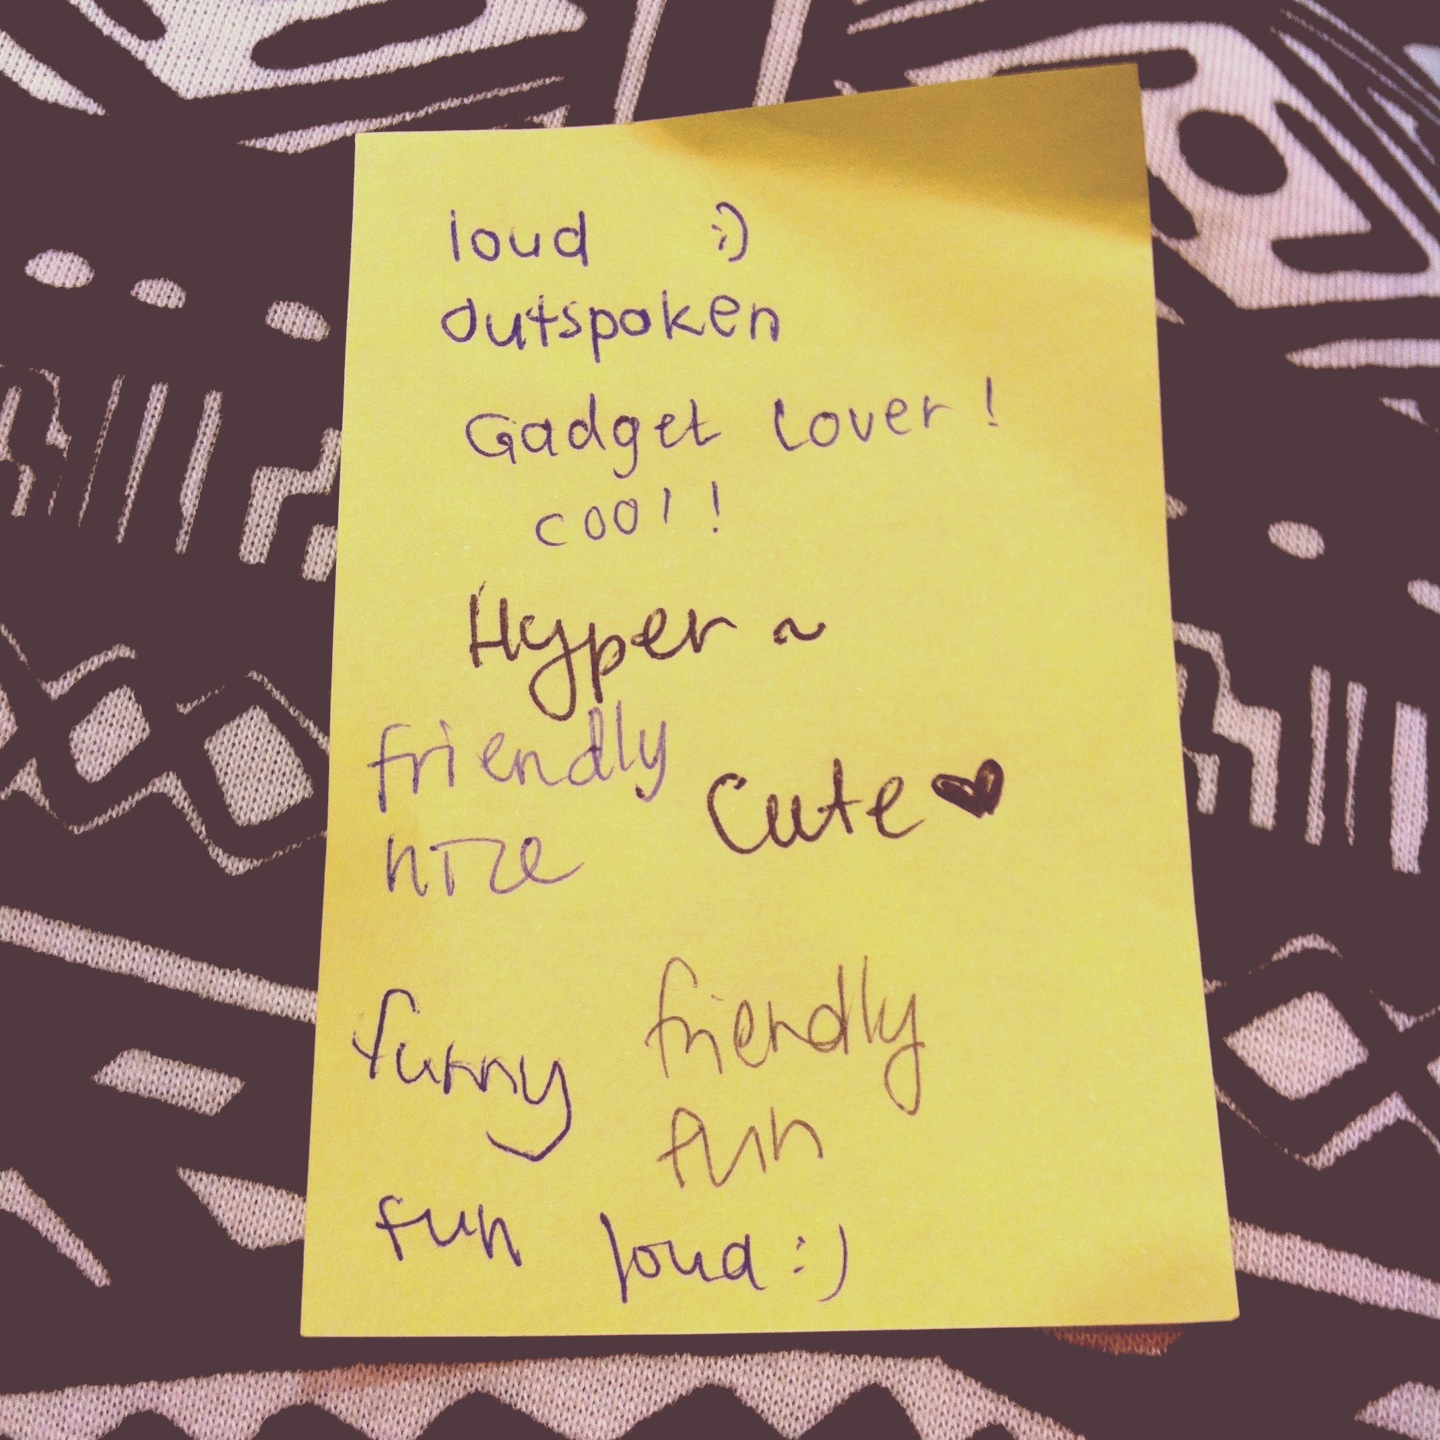 loud :)
outspoken
Gadget Lover !
cool !
Hyper ~
friendly
cute ♥
nice
funny
friendly
fun
fun
loud :)